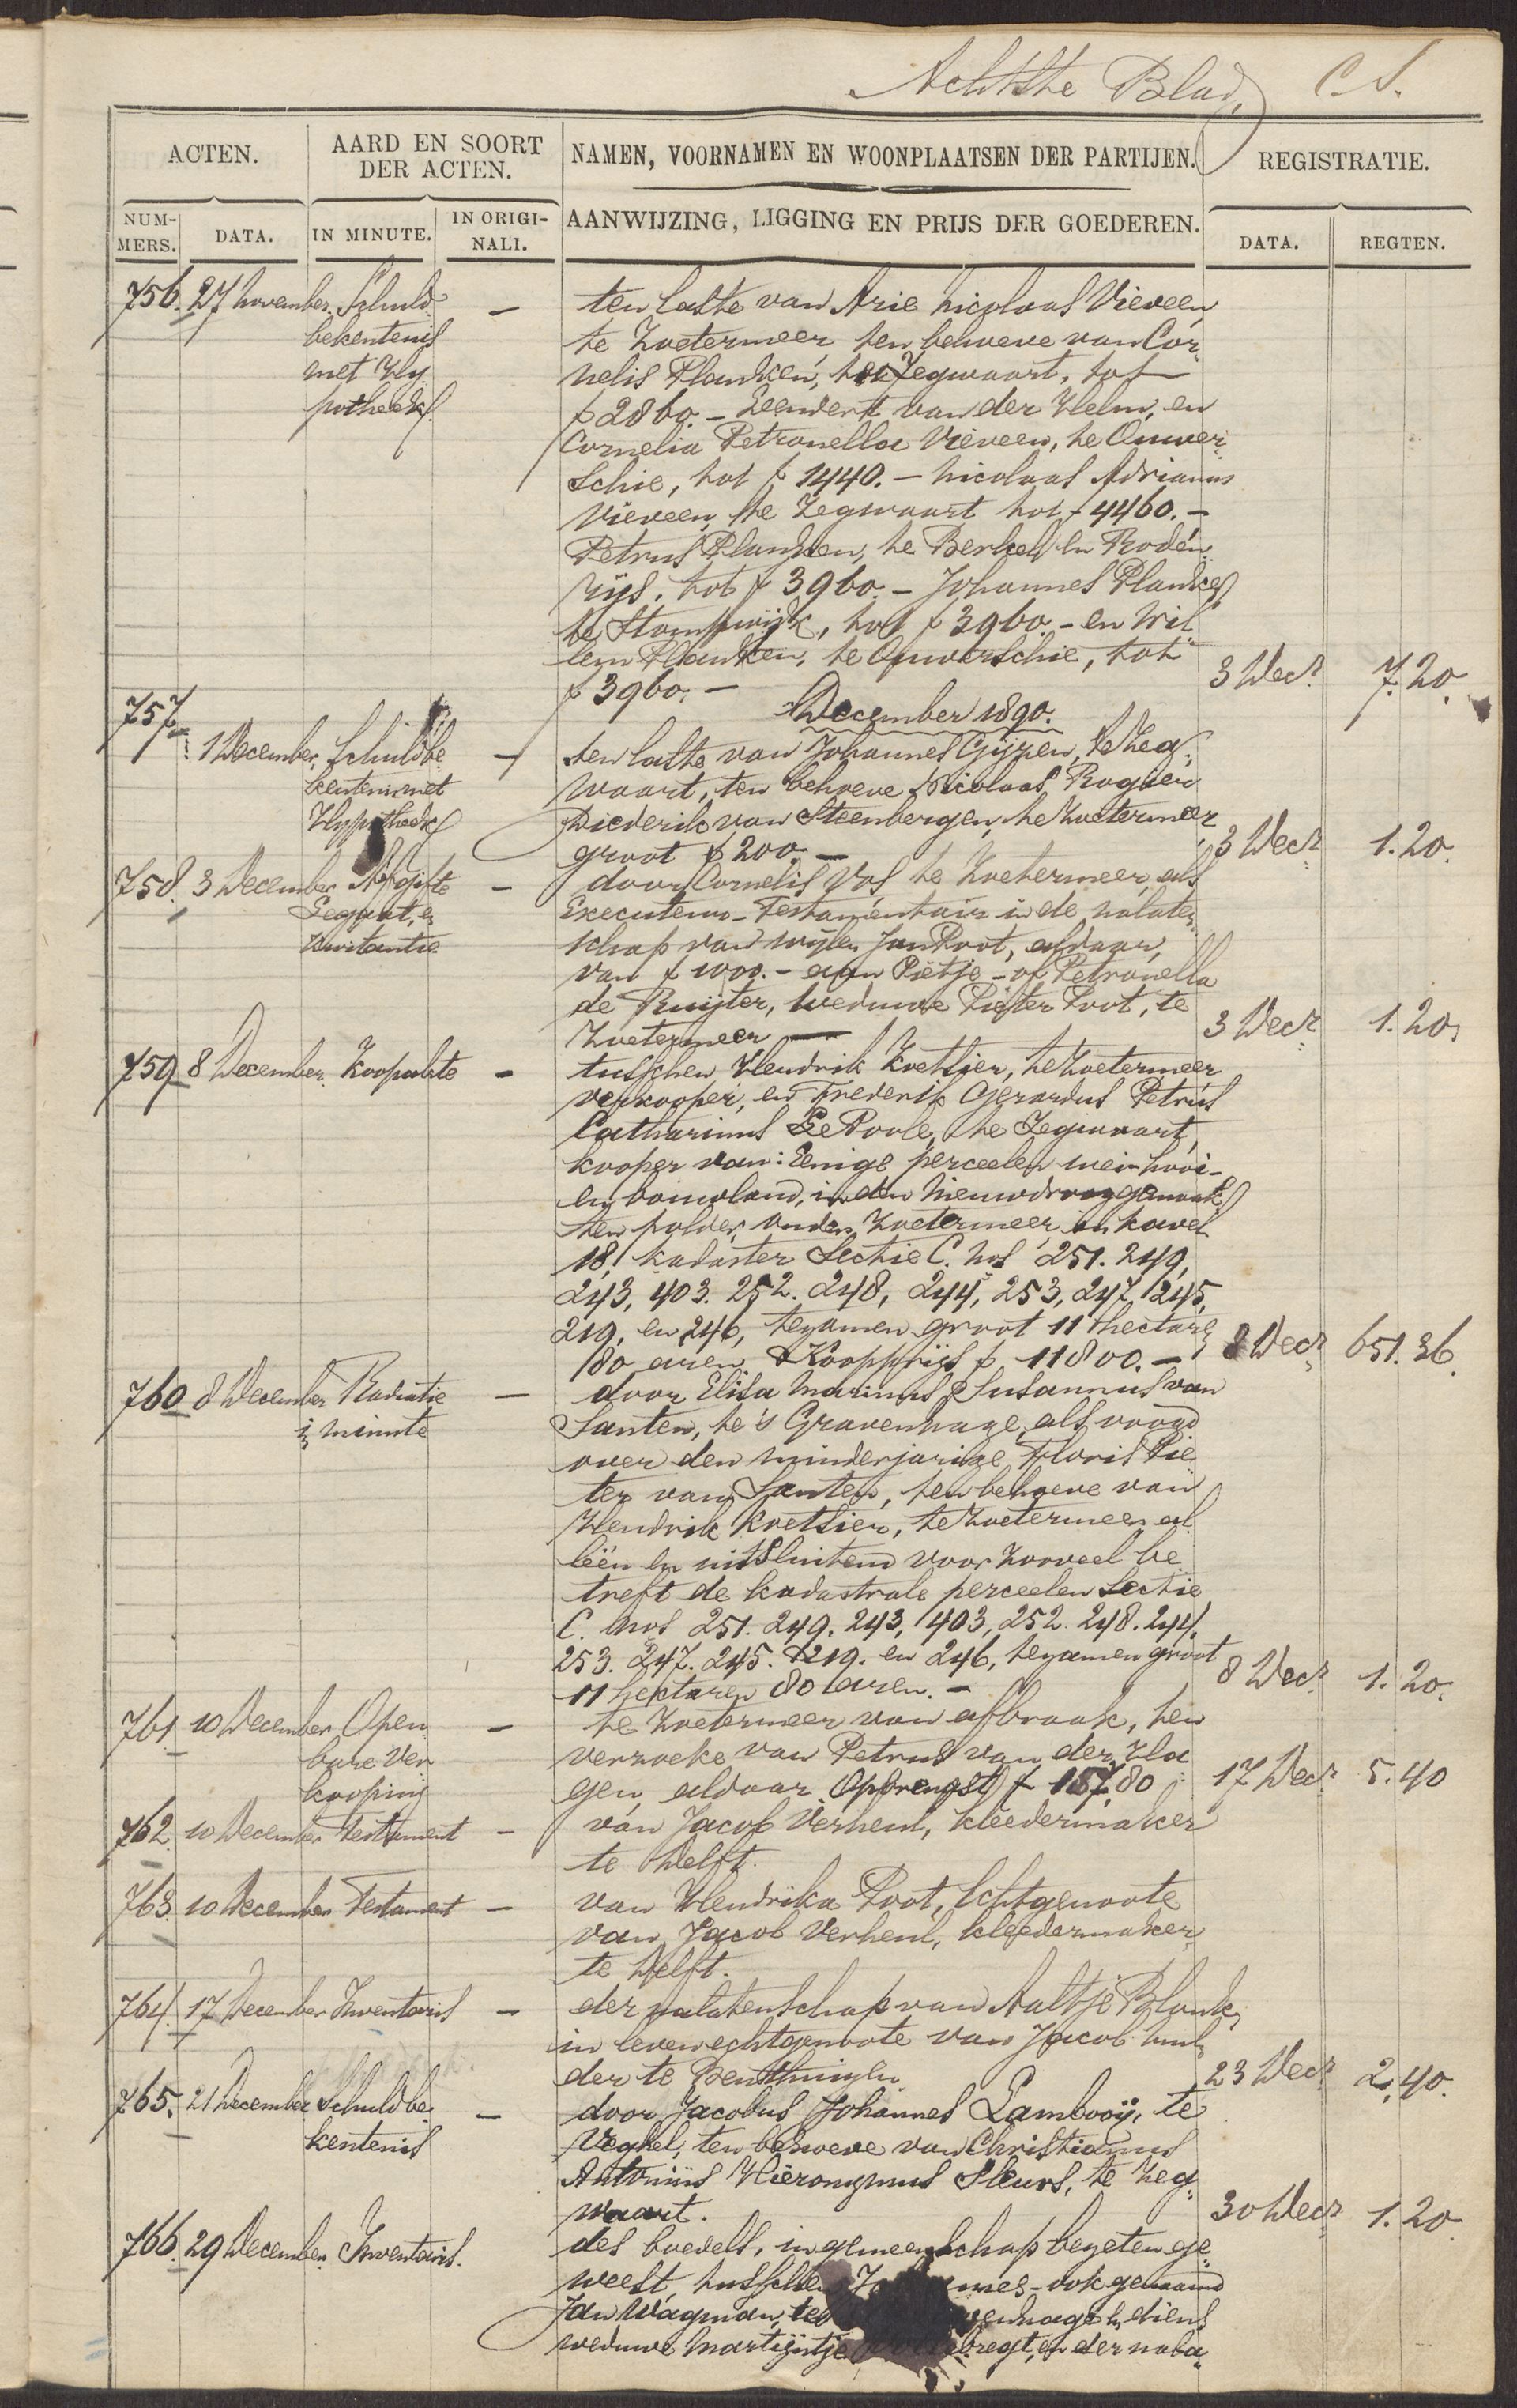 Achtste Blad, C. S.
ACTEN. AARD EN SOORT DER ACTEN. NAMEN, VOORNAMEN EN WOONPLAATSEN DER PARTIJEN. REGISTRATIE.
NUM-MERS. DATA. IN MINUTE. IN ORIGI-NALI. AANWIJZING, LIGGING EN PRIJS DER GOEDEREN. DATA. REGTEN.
756. 27 November. Schuld- — ten laste van Arie Nicolaas Vieveen
bekentenis te Zoetermeer ten behoeve van Cor-
met Hy nelis Planken, te Zegwaart, tot
potheek. f 2860.- Leendert van der Helm, en
Cornelia Petronella Vieveen, te Ouwer-
Schie, tot f 1440.— Nicolaas Adrianus
Vieveen te Zegwaart tot f 4460.—
Petrus Planken, te Berkel en Roden-
rijs, tot f 3960.— Johannes Planken
te Stompwijk, tot f 3960.- en Wil
lem Planken, te Ouwerschie, tot 3 Decr. 7.20.
f 3960.—
December 1890.
757. 1 December. Schuldbe — ten laste van Johannes Gijzen, te Zeg-
kentenis met waart, ten behoeve Nicolaas Rogier
Hypotheek Diederik van Steenbergen, te Zoetermeer
groot f 200.— 3 Decr. 1.20.
758. 3 December Afgifte — door Cornelis Vos te Zoetermeer, als
Legaat, en Executeur-Testamentair in de nalaten
kwitantie schap van wijlen Jan Poot, aldaar,
van f 1000.- aan Pietje - of Petronella
de Ruijter, weduwe Pieter Poot, te
Zoetermeer — 3 Decr. 1.20.
759 8 December. Koopakte — tusschen Hendrik Koetsier, te Zoetermeer
verkooper, en Frederik Gerardus Petrus
Catharinus Le Poole, te Zegwaart,
kooper van: Eenige perceelen wei- hooi-
en bouwland, in den Nieuwdrooggemaak
ten polder, onder Zoetermeer in kavel
18, kadaster Sectie C. Nos 251. 249,
243, 403. 252. 248, 244, 253, 247, 245,
219, en 246, tezamen groot 11 hectare
80 aren. Koopprijs f 11800.— 8 Decr. 651.36.
760 8 December Radiatie — door Elisa Marinus Susannus van
in minute Santen, te 's Gravenhage, als voogd
over den minderjarige Floris Pie
ter van Santen, ten behoeve van
Hendrik Koetsier, te Zoetermeer al
léén en uitsluitend voor zooveel be
treft de kadastrale perceelen Sectie
C. Nos 251. 249. 243, 403, 252. 248. 244,
253. 247. 245. 219. en 246, tezamen groot
11 hektaren 80 aren.— 8 Decr. 1.20.
761 10 December Open — te Zoetermeer van afbraak, ten
bare Ver verzoeke van Petrus van der Ha
kooping gen, aldaar. Opbrengst f 157,80 17 Decr. 5.40
762. 10 December Testament — van Jacob Verheul, kleedermaker
te Delft.
763. 10 December Testament — van Hendrika Poot, Echtgenoote
van Jacob Verheul, kleedermaker
te Delft.
764. 17 December Inventaris — der nalatenschap van Aaltje Blonk,
in leven echtgenoote van Jacob
der te Benthuizen. 23 Decr. 2.40.
765. 21 December Schuldbe — door Jacobus Johannes Lambooij, te
kentenis Veghel, ten behoeve van Christianus
Antonius Hieronymus Sleurs, te Zeg-
waart. 30 Decr. 1.20.
766. 29 December Inventaris. des boedels, in gemeenschap bezeten ge-
weest, tusschen - ook genaamd
Jan Wagman, te en diens
weduwe Martijntje en der nala-